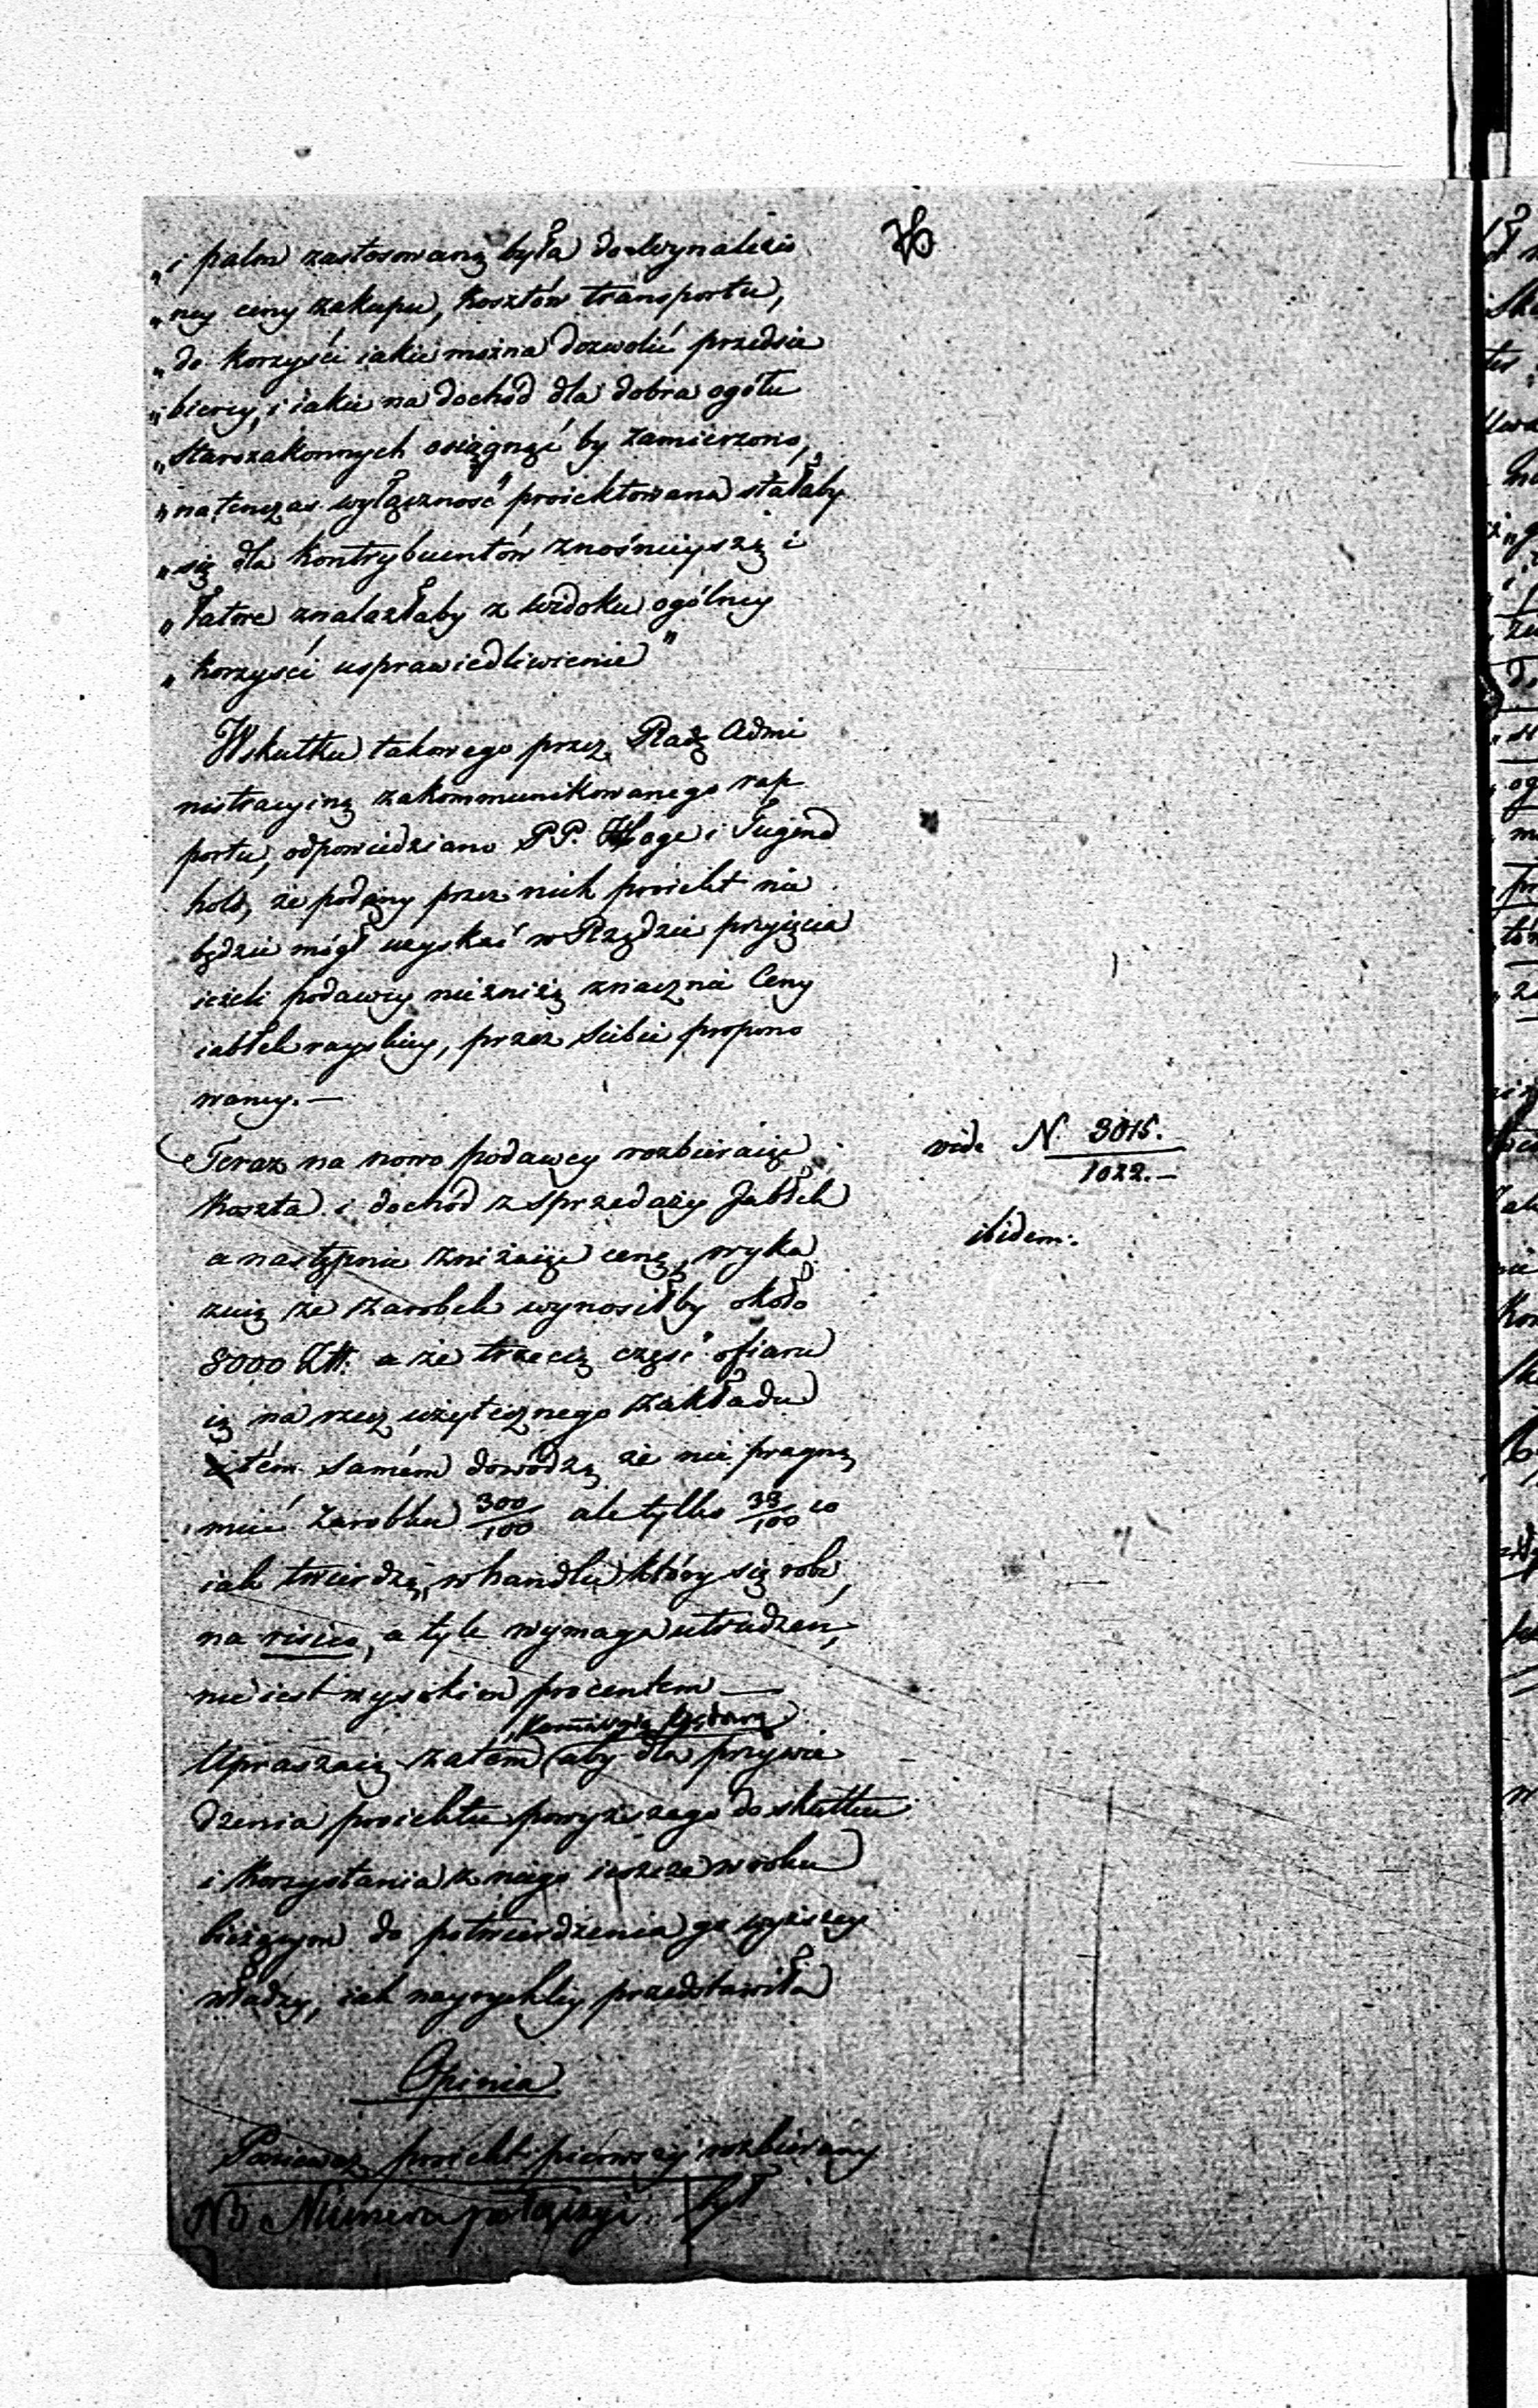 76
„i palm zastosowaną była do wynalezio
„ney ceny zakupu, kosztów transportu,
„do korzyści iakie można dozwolić przedsię
„biercy, i iakie na dochód dla dobra ogółu
„starozakonnych osiągnąć by zamierzono,
„natenczas wyłączność proiektowana stałaby
„się dla kontrybuentów znośnieyszą i
„łatwe znalazłaby z widoku ogólney
„korzyści usprawiedliwienie”
Wskutku takowego przez Radę Admi
nistracyiną zakommunikowanego rap
portu, odpowiedziano PP. Hoge i Tugend
hold, że podany przez nich proiekt nie
będzie mógł uzyskać w Rządzie przyięcia
ieżeli podawcy nie zniżą znacznie Ceny
iabłek rayskiey, przez siebie propono
waney.—
Teraz na nowo podawcy rozbieraiąc
Koszta i dochód z sprzedaży Jabłek
a następnie zniżaiąc cenę, wyka
zuią że zarobek wynosiłby około
8000 Złt. a że trzecią część ofiaru
ią na rzecz użytecznego zakładu
tém samém dowodzą że nie pragną
mieć zarobku 300/100 ale tylko 33/100 co
iak twierdzą, w handlu który się robi
na risico, a tyle wymaga utrudzeń,
nie iest wysokim procentem —
Kommissya
Upraszaią zatém aby dla przywie
dzenia proiektu powyższego do skutku
i korzystania z niego ieszcze w roku
bieżącym do potwierdzenia go wyższey
władzy, iak nayrychley przedstawiła
Opinia
Ponieważ proiekt pierwszy rozbierany
NB Numera połączyć był
vide N. 3015.
1022.—
ibidem.